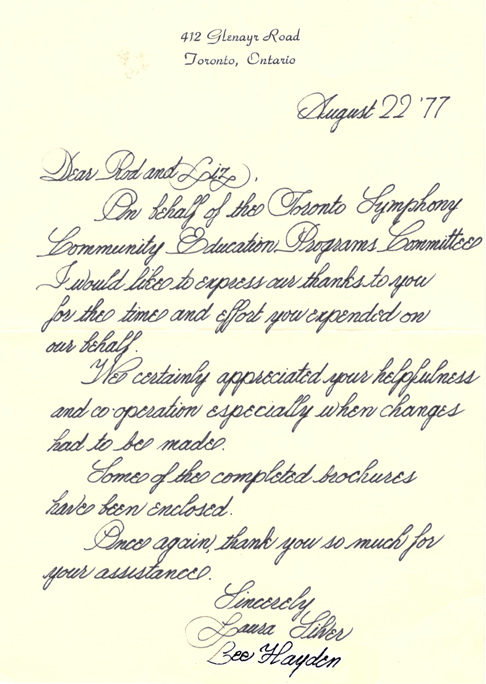 412 Glenayr Road
Toronto, Ontario
August 22 '77
Dear Rod and Liz,
On behalf of the Toronto Symphony
Community Education Programs Committee
I would like to express our thanks to you
for the time and effort you expended on
our behalf.
We certainly appreciated your helpfulness
and co operation especially when changes
had to be made.
Some of the completed brochures
have been enclosed.
Once again, thank you so much for
your assistance.
Sincerely
Laura Silver
Bee Hayden